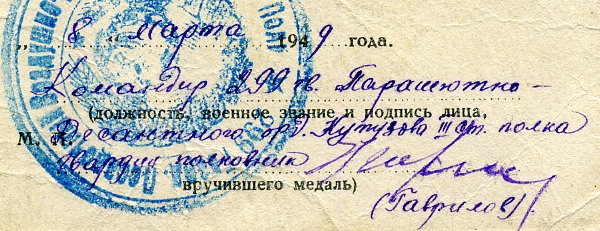 „ 8 “ Марта 1949 года.
Командир 299 гв. Парашютно-
(должность, военное звание и подпись лица,
М. П. Десантного орд. Кутузова III ст. полка
гвардии полковник
вручившего медаль)
(Гаврилов)